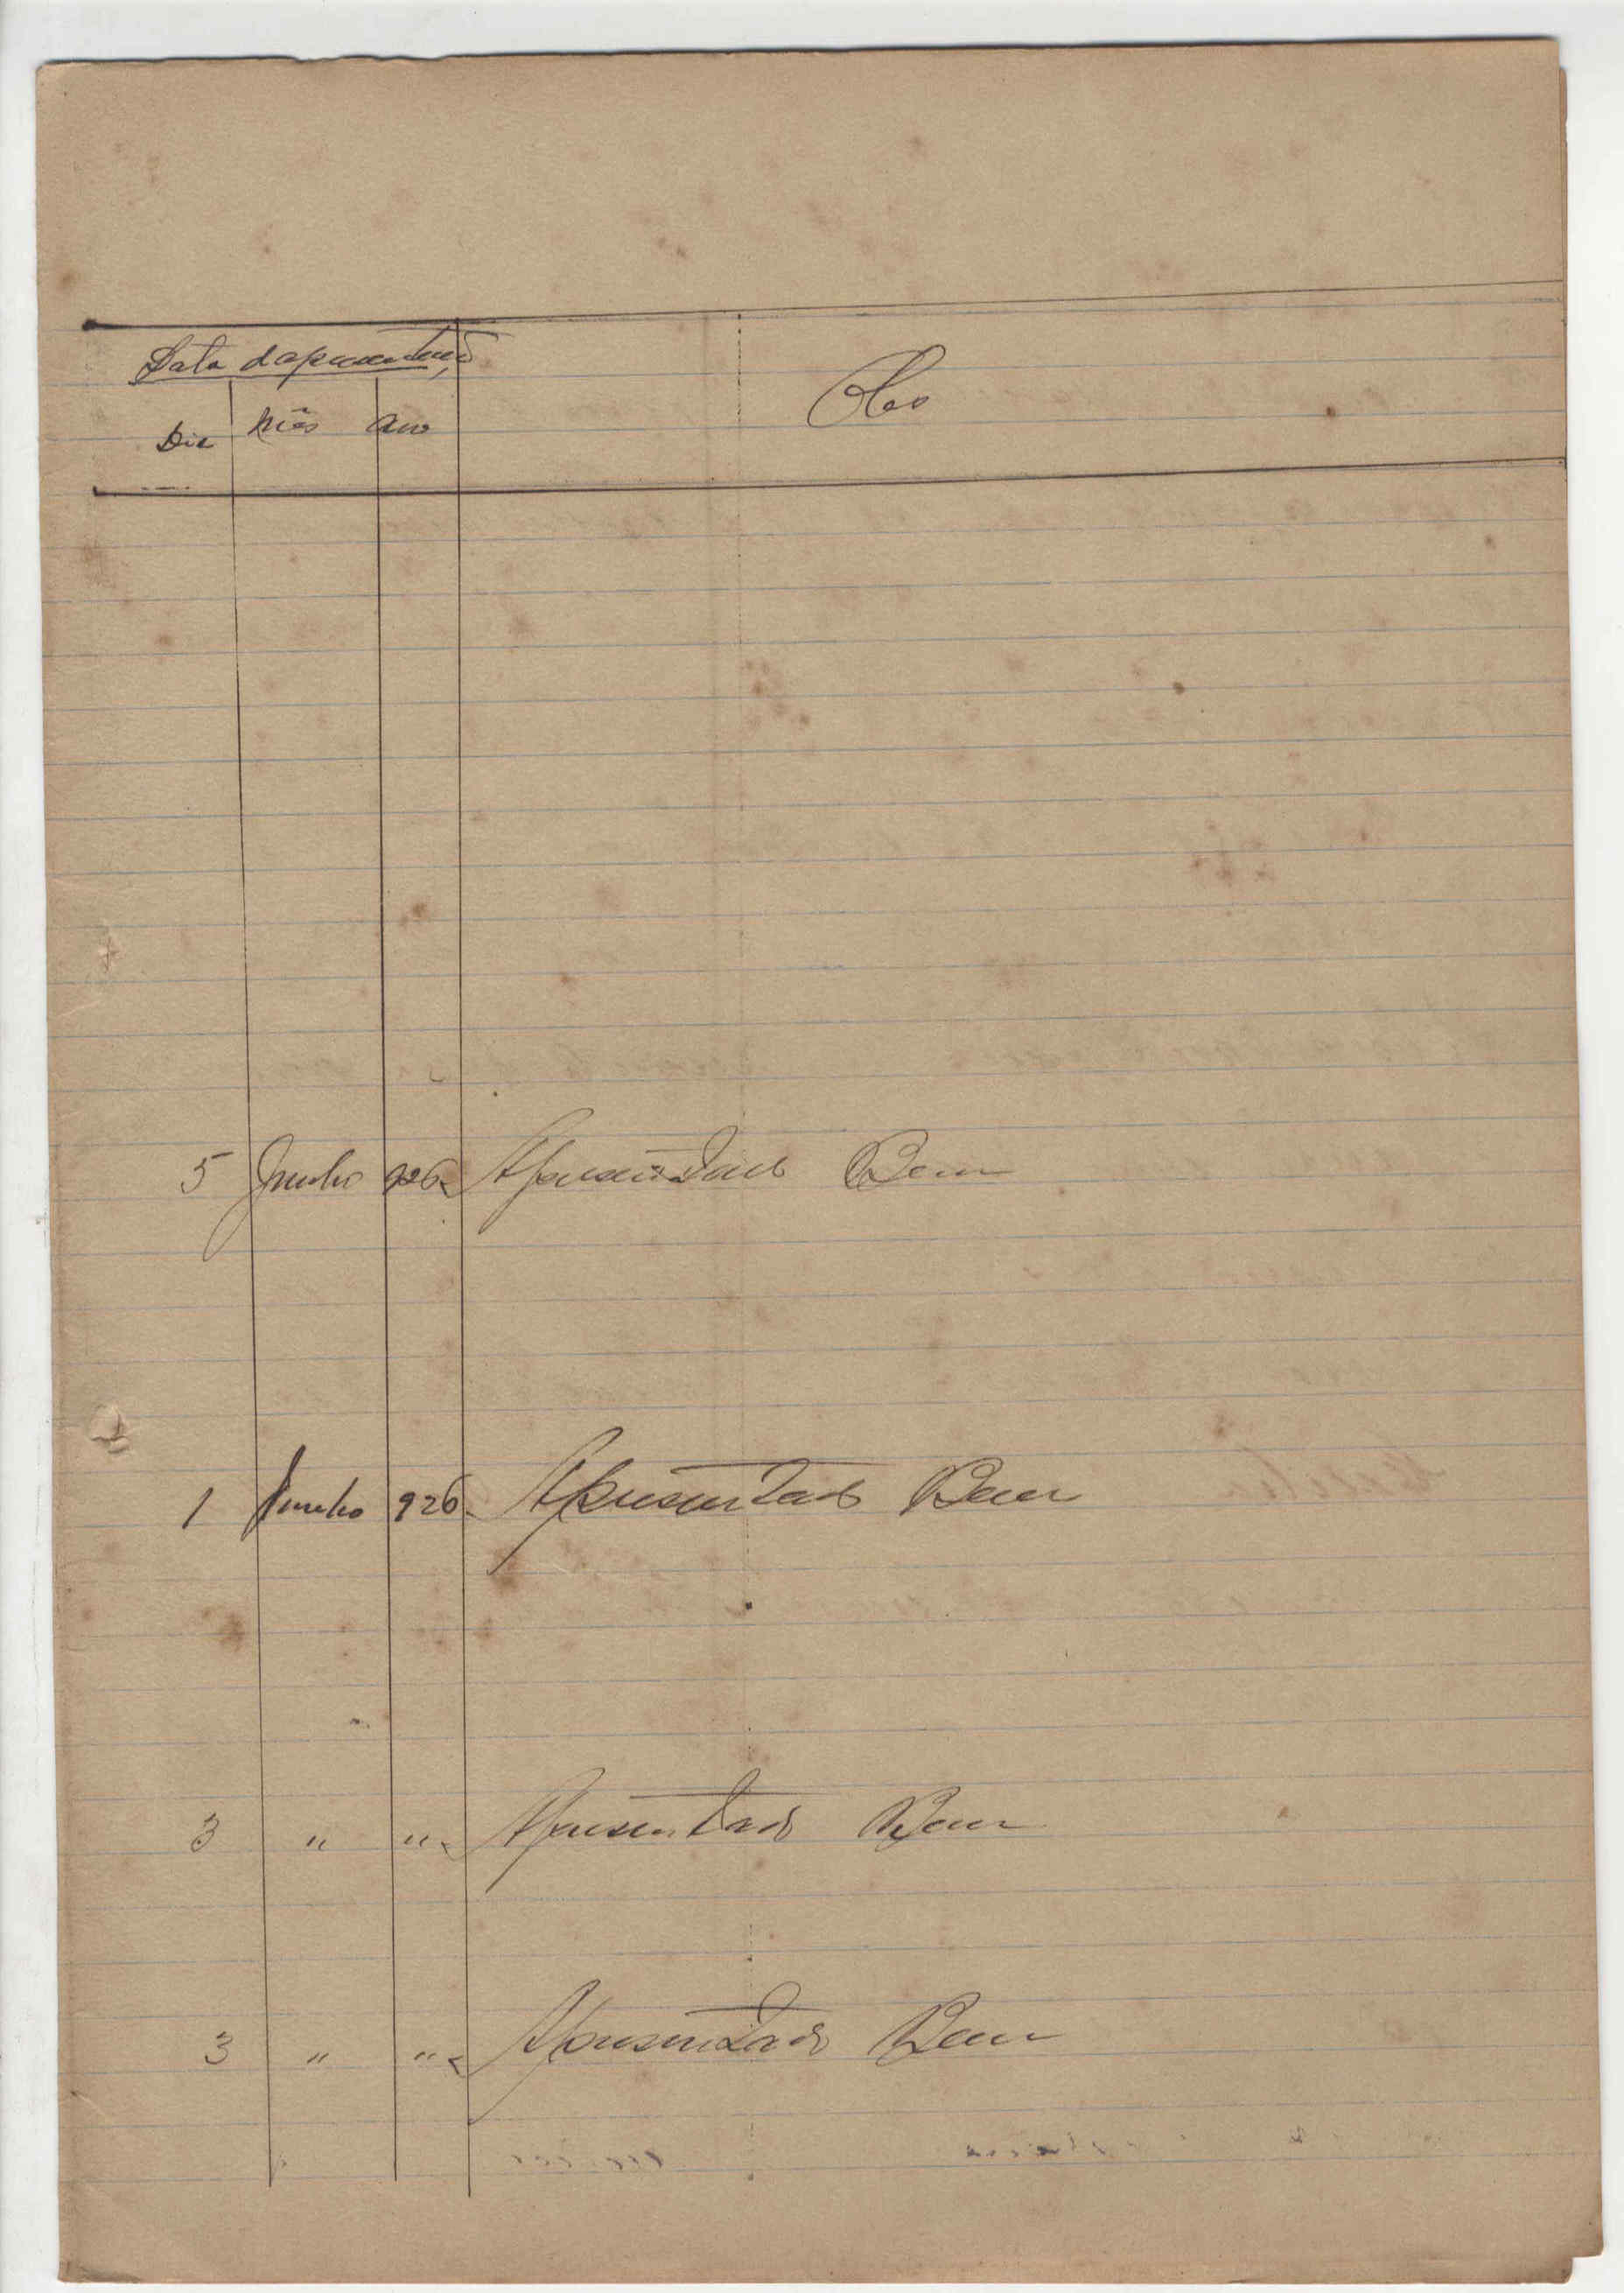 Data d'apresentação
Obs
Dia Mês Ano
5 Junho 926 Apresentado Bem
1 Junho 926. Apresentado Bem
3 " " Apresentado Bem
3 " " Apresentado Bem